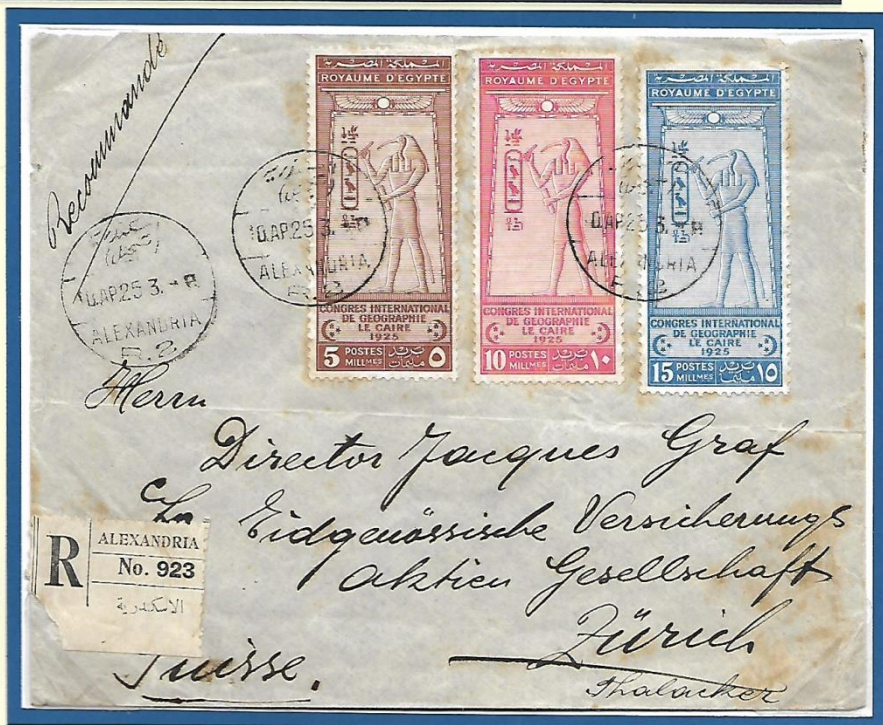 Recommandé
المملكة المصرية
ROYAUME D'EGYPTE
CONGRES INTERNATIONAL
DE GEOGRAPHIE
LE CAIRE
1925
5 POSTES MILLMES بريد مليمات ٥
المملكة المصرية
ROYAUME D'EGYPTE
CONGRES INTERNATIONAL
DE GEOGRAPHIE
LE CAIRE
1925
10 POSTES MILLMES بريد مليمات ١٠
المملكة المصرية
ROYAUME D'EGYPTE
CONGRES INTERNATIONAL
DE GEOGRAPHIE
LE CAIRE
1925
15 POSTES MILLMES بريد مليمات ١٥
10.AP.25 3.
ALEXANDRIA
R.2
10.AP.25 3.
ALEXANDRIA
R.2
10.AP.25 3.
ALEXANDRIA
R.2
Herrn
Director Jacques Graf
Eidgenössische Versicherungs
Aktien Gesellschaft
Zürich
Thalacker
Suisse.
R
ALEXANDRIA
No. 923
الاسكندرية